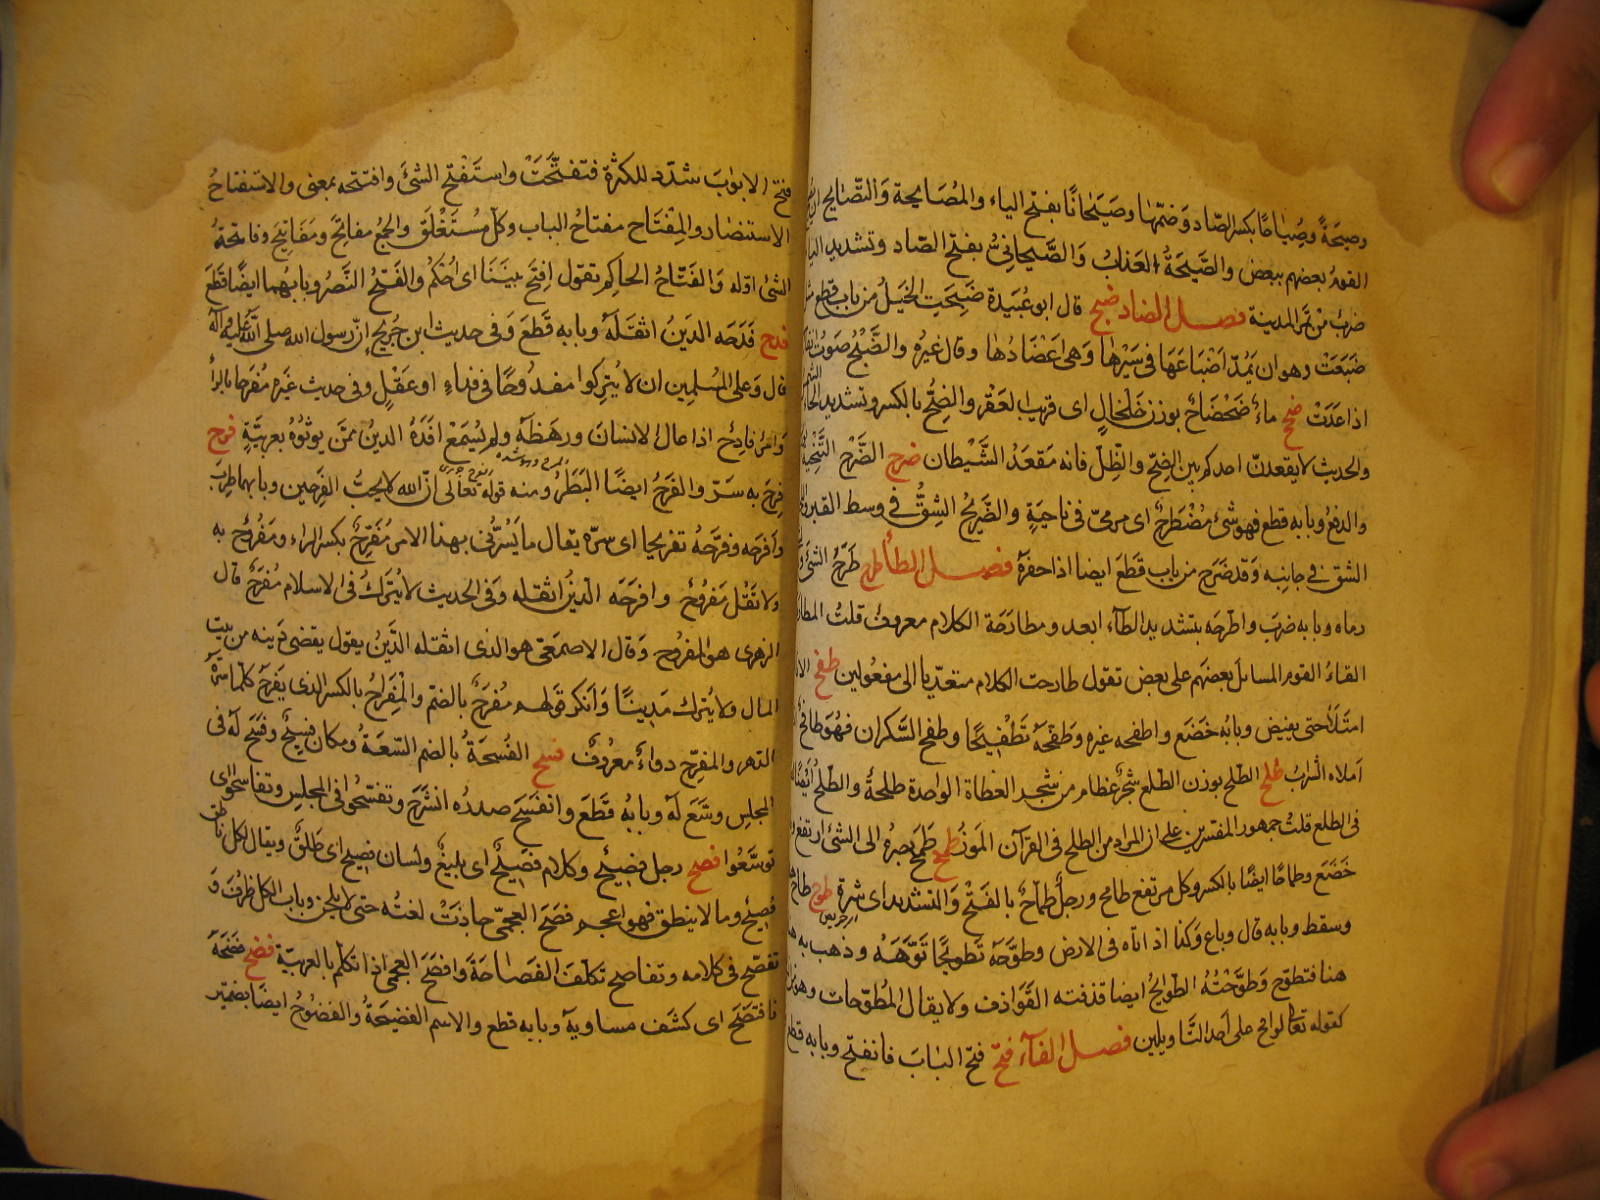 وصيحةً وصُياحًا بكسر الصّاد وَضمّها وصَيَحانًا بفتح الياء والمُصَايحة وَالتّصَايح ان يصيح
القوم بعضهم ببعض والصَّيحَةُ العذاب وَالصَّيحانيّ بفتح الصّاد وتشديد الياء
ضرب من تمر المدينة فصل الضاد ضبح قال ابو عُبَيدة ضَبحَت الخيل من باب قطع
ضَبَعَتْ وهو ان يَمُدّ اَضْبَاعَهَا في سَيْرها وَهي اَعْضَادُها وقال غيرُه والضَّبْحُ صَوتُ انفاسها
اذا عَدَتْ ضح ماءٌ ضَحْضَاحٌ بوزن خَلخالٍ اى قريب القعر والضِحُّ بالكسر وتشديد الحاء الشمس
والحديث لا يقعدنّ احدكم بين الضِحّ والظّلّ فانه مَقعَدُ الشّيطان ضرح الضَّرْح التَّنْحِية
والدفعُ وبابه قطع فهو شيءٌ مُضْطَرَحٌ اى مرميّ في ناحيَةٍ والضَّرِيحُ الشِقُّ في وسط القبر
الشق في جانِبِه وَقد ضَرَح من باب قَطَعَ ايضا اذا حفرَهُ فصل الطأ طرح طَرَحَ الشئَ
رماه وبابه ضرَبَ واطّرحَه بتشديد الطآء ابعد ومطارَحَة الكلام معروف قلتُ المطارحة
القاءُ القوم المسائل بعضهم على بعض تقول طارحت الكلام متعدّيا الى مفعولين طفح
امتَلَأَ حتى يفيض وبابُه خضَع واطفحه غيره وَطَفّحَهُ تَطْفِيحًا وطفح السَّكران فهُوَ طافحٌ
اَملاه الشراب طلح الطّلح بوزن الطلع شجرٌ عظام من شجر العظاة الواحدة طلحةٌ والطّلحُ ايضًا
في الطلع قلتُ جمهور المفسّرين على ان المراد من الطلح في القرآن المَوزُ طمح طَمَحَ بصرُه الى الشئ ارتفع
خَضَعَ وطماحًا ايضًا بالكسر وكل مرتفع طامح ورجلٌ طمّاحٌ بالفَتْح وَالتشديد اى شرِهٌ طوح طاح
حريص
وسقط وبابه قال وباع وَكذا اذا تاه في الارض وطوَّحَهُ تَطوِيحًا تَوَّهَهُ وذهب به
هنا فتطوّح وَطوَّحَتْهُ الطوايحُ ايضا قذفته القَوَاذف ولا يقال المُطوِّحات وهو
كقوله تعالى لواقح على أحد التَّاويلين فصل الفآء فتح فتح البابَ فانفتح وبابه قطع
فتح الابوابَ شدّد للكثرة فتفتَّحَتْ واستَفْتح الشئَ وافتتحه بمعنى والاستفتاحُ
الاستنصار والمِفْتَاح مفتاحُ الباب وكلّ مُستَغْلَق والجمعُ مفاتِحُ ومَفَاتِيح وفاتحةُ
الشئ اوّله وَالفَتّاحُ الحاكم تقول اِفتَح بَينَنَا اى احْكُمْ والفَتْحُ النَّصْر وبابُهما ايضًا قَطَعَ
فدح فَدَحَه الدَينُ اثقَلَهُ وبابه قَطَعَ وَفي حديث ابن جُريجٍ انّ رسول الله صلى الله عليه وآله
قال وَعلى المُسلِمِين ان لا يُترِكوا مفدُوحًا في فداءٍ او عَقلٍ وفي حديث غيره مُفرَحا بالراء
وَامرٌ فادِحٌ اذا عال الانسانَ وبهظَهُ ولم يُسمَعْ افدَحَهُ الدينُ ممّن يوثَقُ بعربيّتهِ فرح
فرِحَ به سَرّ والفَرَحُ ايضًا البَطَرُ ومنه قوله تعالى انّ الله لا يحبّ الفرحين وبابهما طرِبَ
وافرحَه وفرَّحَهُ تفريحا اى سرّه يقال ما يَسُرُّني بهذا الامر مُفْرِحٌ بكسر الراء ومَفْرُوحٌ به
ولا تَقُل مَفْروحٌ وافرَحَه الدّينُ اثقله وَفي الحديث لا يُترَك في الاسلام مُفْرَحٌ قال
الزهرى هو المَفْرُوح وَقال الاصمعَيّ هو الذى اثقله الدَّينُ يقول يقضى دَينه من بيت
المال ولا يُترك مَدِينًا وَانكر قولهم مُفرَحٌ بالضّم والمِفْرَاحُ بالكسر الذى يَفرَح كلما سَرَّهُ
الدّهر والمفرِح دواءٌ معرُوفٌ فسح الفُسحَةُ بالضم السّعَةُ ومكان فسِيحٌ وفَسَح لَهُ في
المجلس وسَّعَ لَه وبابُه قَطَعَ وانفسَحَ صدرُه انشَرَح وتفسّحُوا في المجلِس وتفاسحُوا اى
توسَّعُوا فصح رجل فصيحٌ وكلام فصَيحٌ اى بليغٌ ولسان فصيح اى طَلقٌ ويقال لكل ناطق
فصيحٌ وما لا ينطق فهو اعجم فصُحَ العجميّ جادَتْ لغتُه حتى لا يلحن وباب الكل ظرُفَ وَ
تفصّح في كلامه وتفاصح تكلّفَ الفصَاحة وافصَح العجمى اذا تكلّم بالعربيّة فضح فضَحَهُ
فافتضَح اى كشف مساويَهُ وبابه قطع والاسم الفضيحَةُ والفضُوحُ ايضًا بضمتين